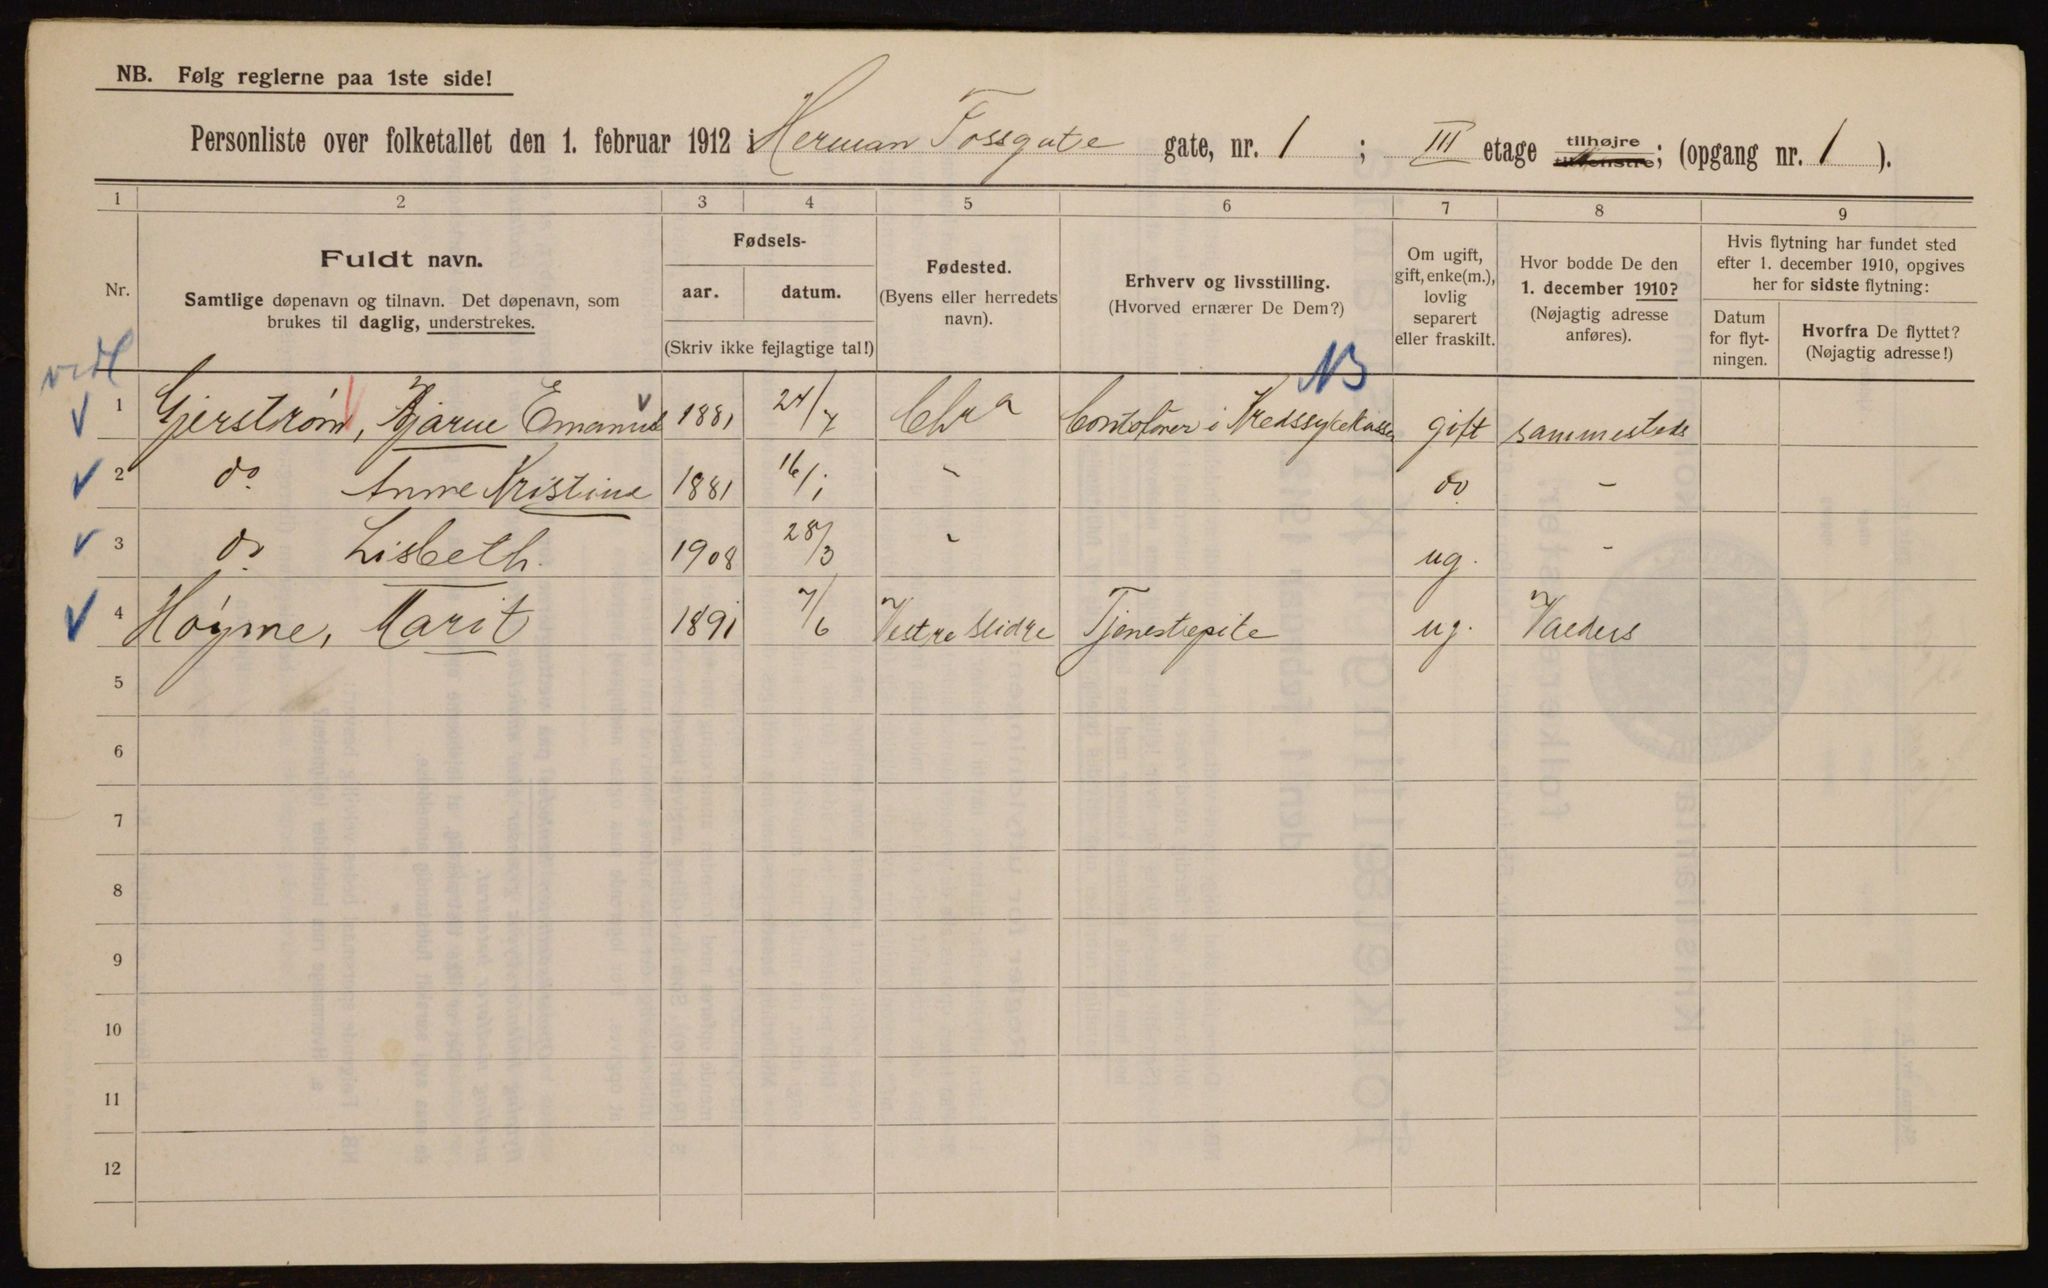 NB. Følg reglerne paa 1ste side!
Personliste over folketallet den 1. februar 1912 i Herman Fossgate gate, nr. 1 ; III etage tilhøjre tilvenstre; (opgang nr. 1 ).
1 2 3 4 5 6 7 8 9
Nr.
Fuldt navn.
Samtlige døpenavn og tilnavn. Det døpenavn, som
brukes til daglig, understrekes.
Fødsels-
aar. datum.
(Skriv ikke fejlagtige tal!)
Fødested.
(Byens eller herredets
navn).
Erhverv og livsstilling.
(Hvorved ernærer De Dem?)
Om ugift,
gift, enke(m.),
lovlig
separert
eller fraskilt.
Hvor bodde De den
1. december 1910?
(Nøjagtig adresse
anføres).
Hvis flytning har fundet sted
efter 1. december 1910, opgives
her for sidste flytning:
Datum
for flyt-
ningen.
Hvorfra De flyttet?
(Nøjagtig adresse!)
NB
1 Gjerstrøm, Bjarne Emanuel 1881 Chra i Kredssykekassen gift sammesteds
2 do Anne Kristine 1881 16/1 " do -
3 do Lisbeth. 1908 28/3 " ug. -
4 Høyme, Marit 1891 7/6 Vestre Slidre Tjenestepike ug. Valders
5
6
7
8
9
10
11
12